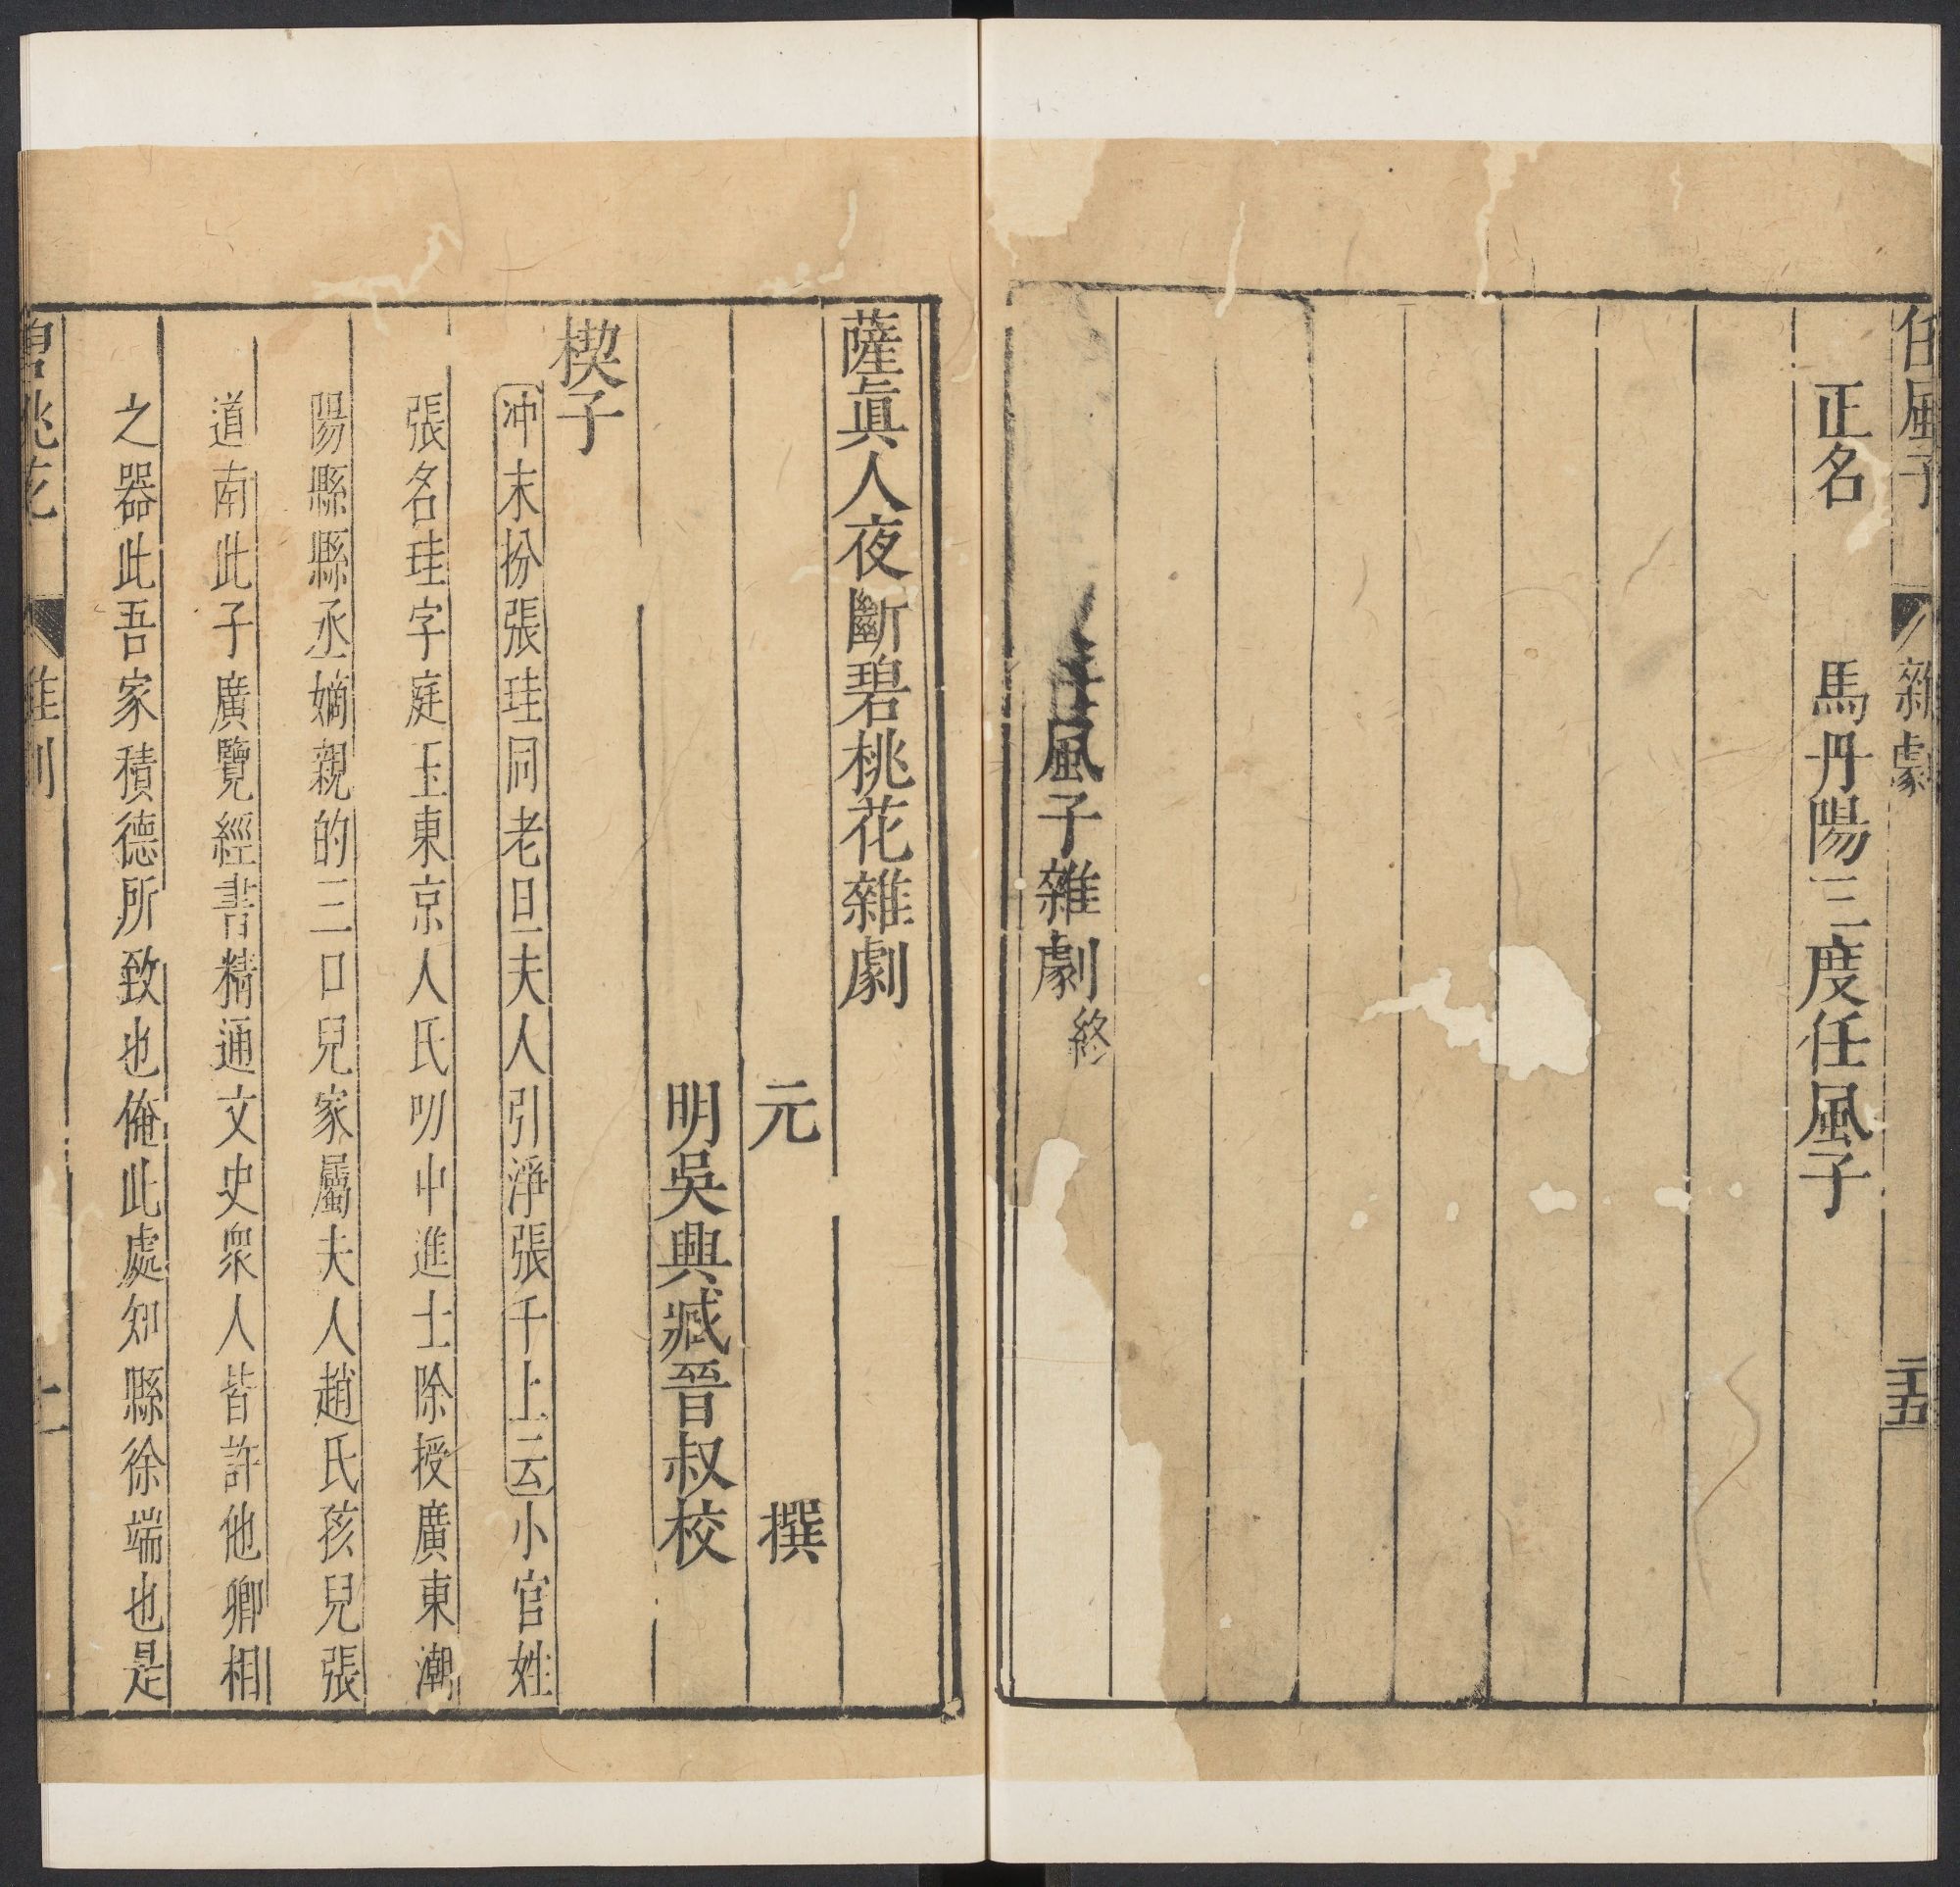 任風子　雜劇　二十五
正名　馬丹陽三度任風子
任風子雜劇終
薩眞人夜斷碧桃花雜劇
元　撰
明吳興臧晉叔校
楔子
冲末扮張珪同老旦夫人引淨張千上云小官姓
張名珪字庭玉東京人氏叨中進士除授廣東潮
陽縣縣丞嫡親的三口兒家屬夫人趙氏孩兒張
道南此子廣覽經書精通文史衆人皆許他卿相
之器此吾家積德所致也俺此處知縣徐端也是
碧桃花　雜劇　一